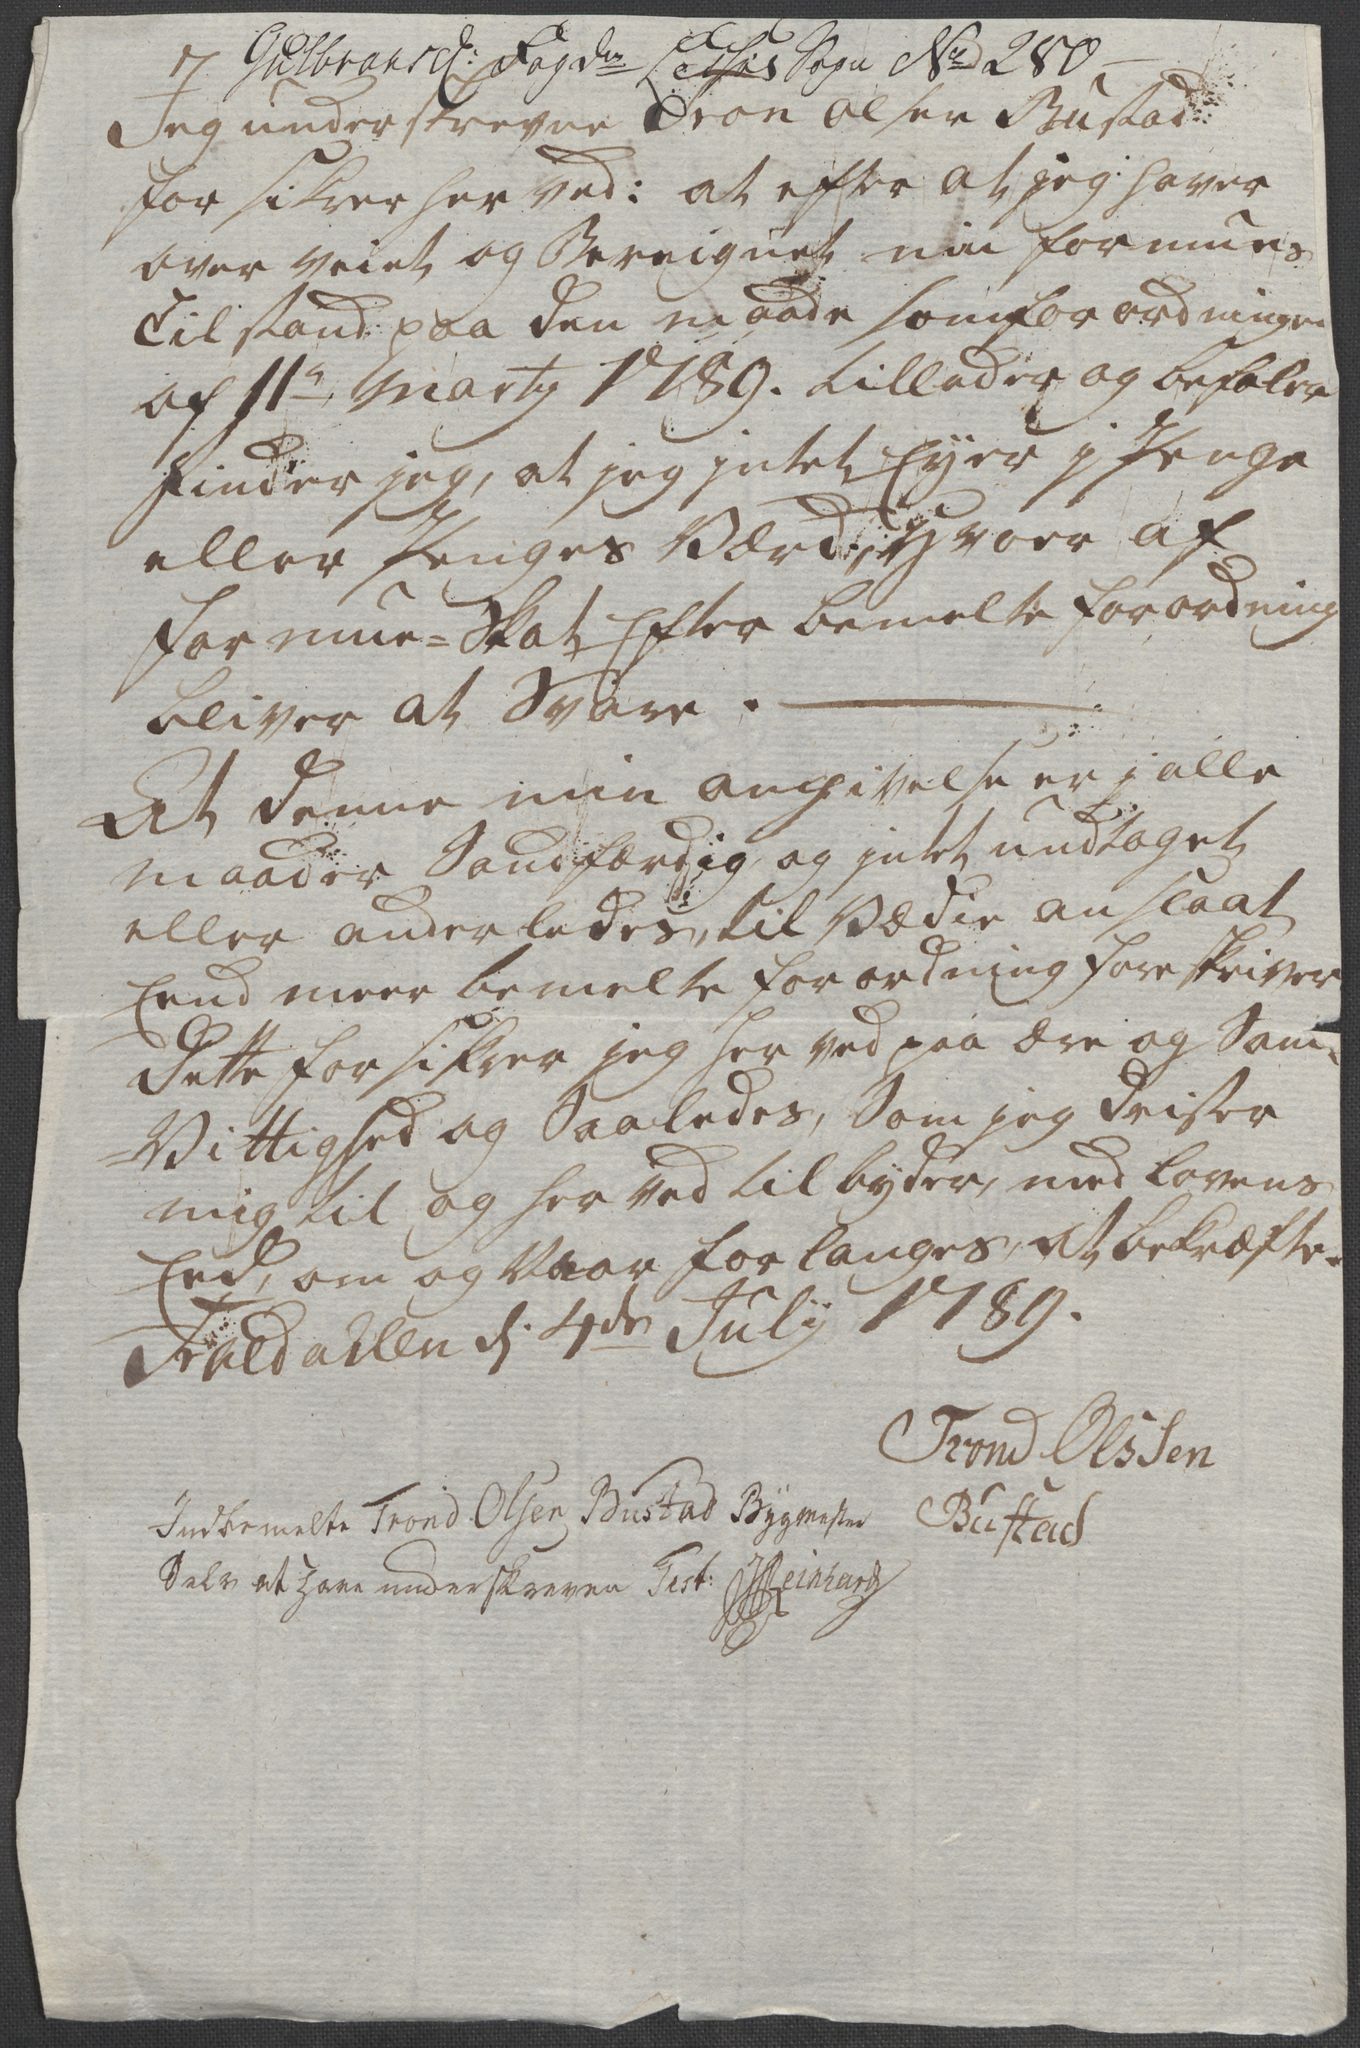 7 Gulbransd: Fogd.rie Lessøe Sogn No 280
Jeg underskrevne Tron olsen Bustad
for sikrer her ved: at efter at jeg haver
over veiet og Bereignet min formues
Tilstand paa den maade som forordningen
af 11te Marty 1789. tillader og befaler
finder jeg, at jeg intet Eyer i Penge
eller Penges Værd, Hvorr af
formue=Skat Efter bemelte forordning
bliver at Svare.
At denne min angivelse er i alle
maader Sandfærdig, og intet undtaget
eller anderledes, til Vædie anslaat
End meer bemelte forordning foreskriver
Dette for sikrer jeg her ved paa ære og Sam=
=Vittighed og Saaledes, Som jeg drister
mig til og her ved tilbyder, med lovens
Eed, om og Vaar forlanges, at bekræfte.
d. 4de July 1789.
Trond Olssen
Bustad
Indbemelte Trond Olsen Bustad Bygmester
Selv at have underskreven Test: Reinhard